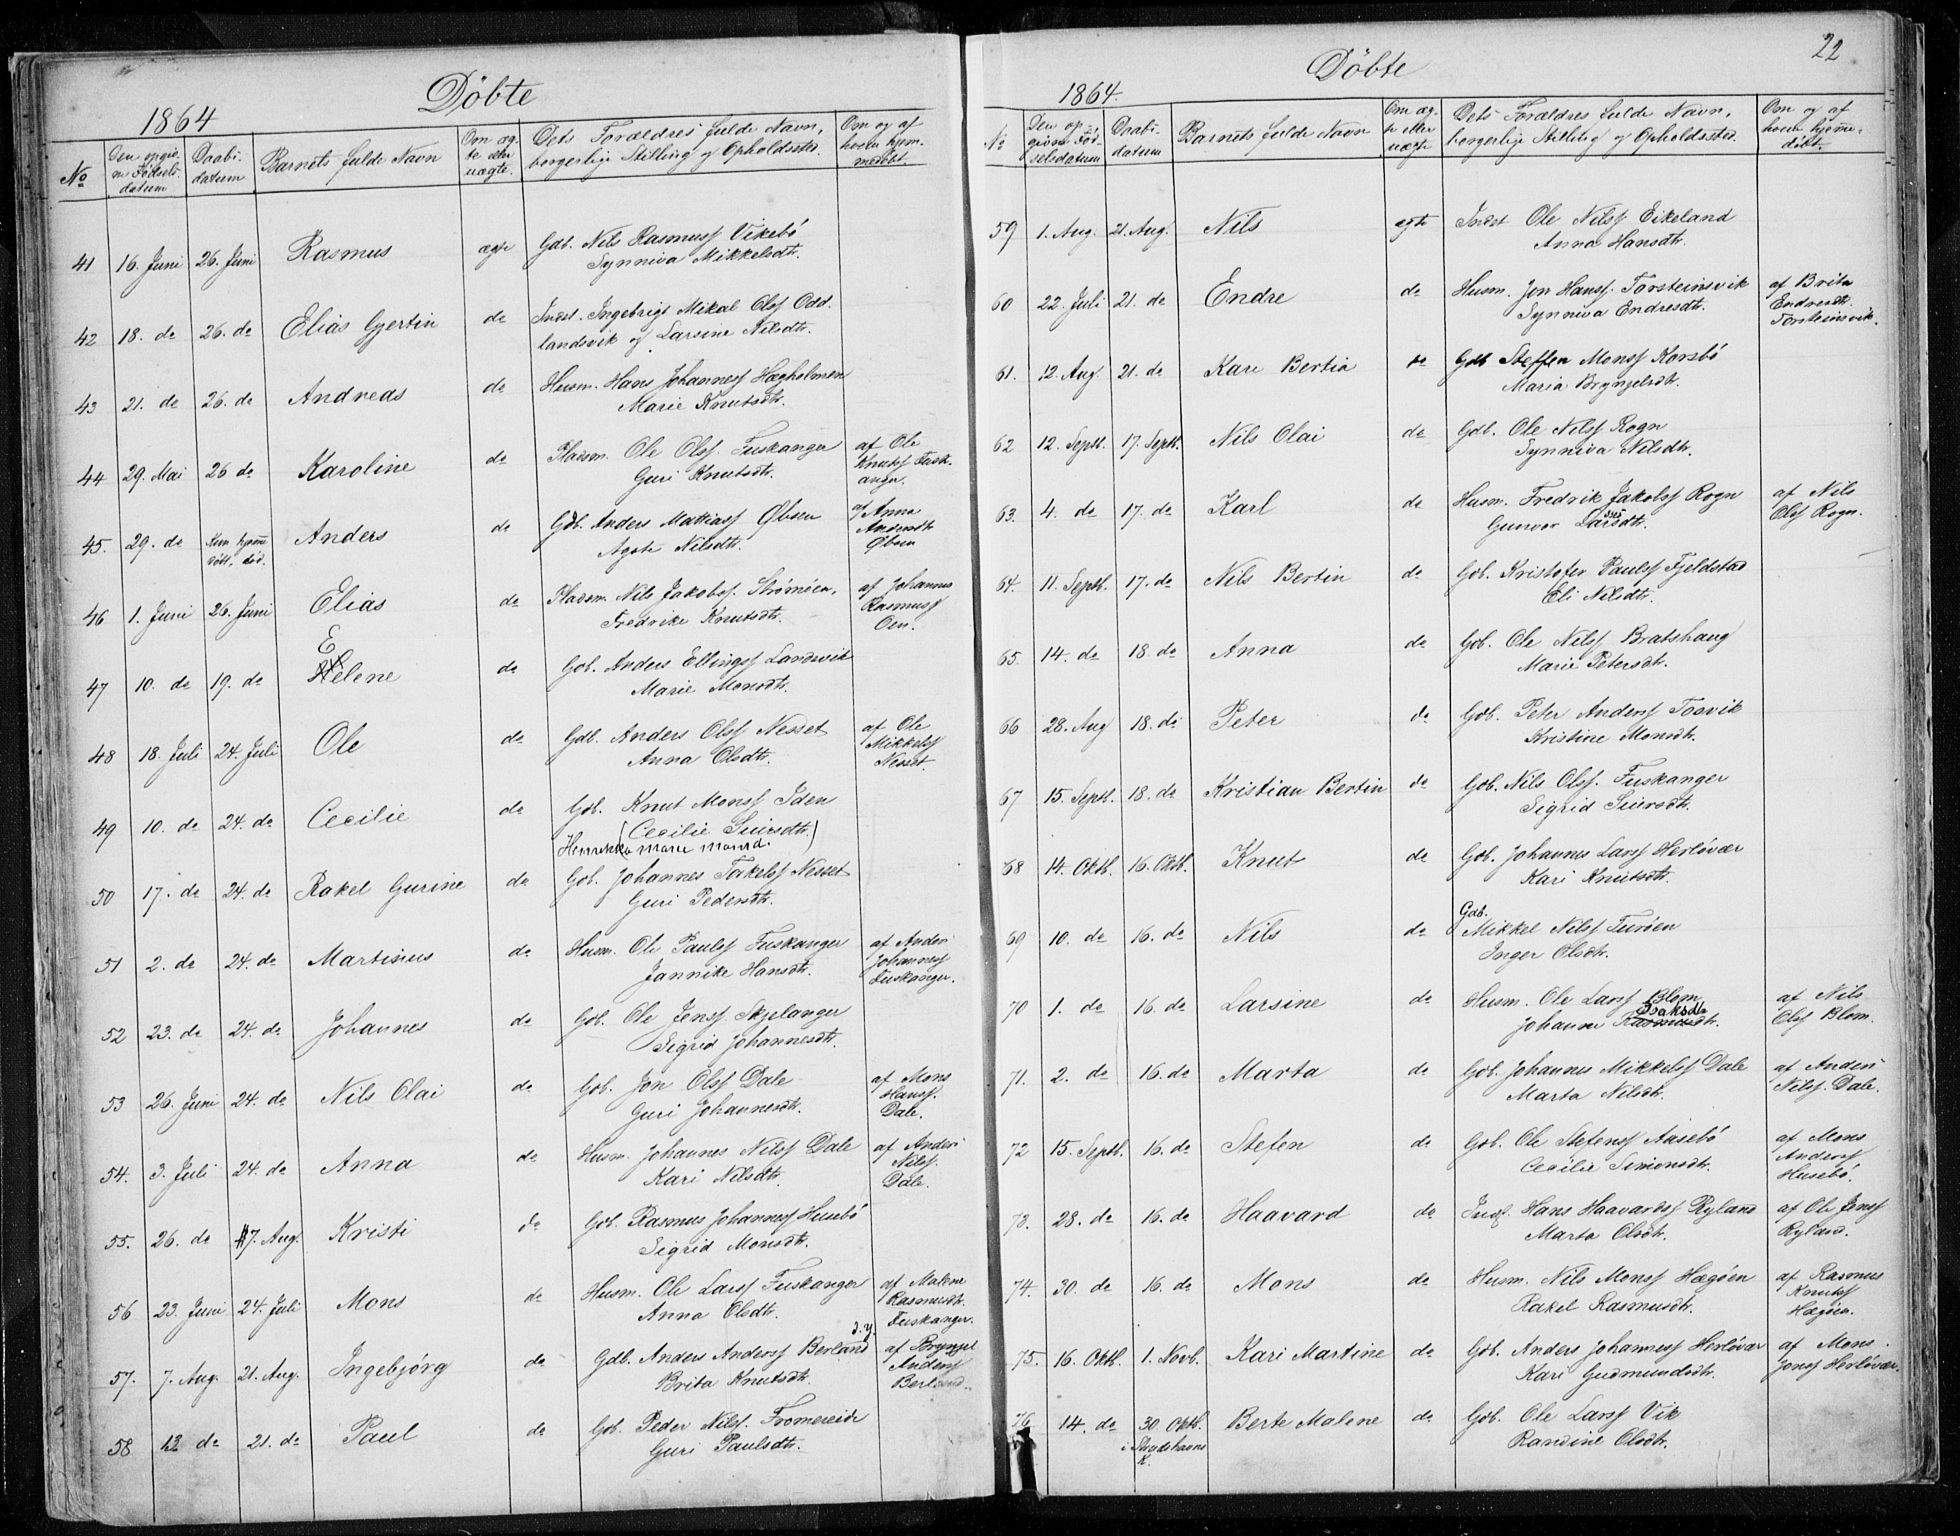 Døbte
1864
No
Den opgiv-
ne Fødsels-
datum
Daabs-
datum
Barnets fulde Navn
Om æg-
te eller
uægte.
Dets Forældres fulde Navn,
borgerlige Stilling og Opholdssted.
Om og af
hvem hjem-
medøbt
41 16. Juni 26. Juni Rasmus ægte Gdb. Nils Rasmuss Vikebö
Synniva Mikkelsdtr.
42 18. do 26. do Elias Gjertin do Indst. Ingebrigt Mikal Olss Odd-
landsvik og Larsine Nilsdtr.
43 21. do 26. do Andreas do Husm. Hans Johanness Hægholmen
Marie Knutsdtr.
44 29. Mai 26 do Karoline do Pladsm. Ole Olss. Fuskanger af Ole
Guri Knutsdtr. Knutss Fusk-
anger.
45. 29. do Kun hjemme-
døbt, død. Anders do Gdb. Anders Mattiass Øbsen af Anna
Agote Nilsdtr. Andersdtr
Øbsen
46 1. Juni 26. Juni Elias do Pladsm. Nils Jakobss. Strømöen, af Johannes
Fredrike Knutsdtr. Rasmuss
Oen.
47 10. do 19. do Elene do Gdb. Anders Ellingss Landsvik
Marie Monsdtr.
48 18. Juli 24. Juli Ole do Gdb. Anders Olss Nesset af Ole
Anna Olsdtr. Mikkelss
Nesset.
49 10. do 24. do Cecilie do Gdb. Knut Monss Iden
(Cecilie Siursdtr.)
Henrikka Marie Monsd.
50 17. do 24. do Rakel Gurine do Gdb. Johannes Takelss Nesset
Guri Pedersdtr.
51 2. do 24. do Martinus do Husm. Ole Paulss Fuskanger af Anders
Jannike Hansdtr. Johanness
Fuskanger.
52 23. do 24. do Johannes do Gdb. Ole Jenss Skjelanger
Sigrid Johannesdtr.
53 26. Juni 24. do Nils Olai do Gdb. Jon Olss Dale af Mons
Guri Johannesdtr. Hanss.
Dale.
54. 3. Juli 24. do Anna do Husm. Johannes Nilss Dale af Anders
Kari Nilsdtr. Nilss.
Dale.
55. 26. do 7. Aug. Kristi do Gdb. Rasmus Johanness Husebö
Sigrid Monsdtr.
56 23. Juni 24. Juli Mons do Husm. Ole Larss Fuskanger af Malene
Anna Olsdtr. Rasmusdtr.
Fuskanger.
57. 7. Aug. 21. Aug. Ingebjörg do Gdb. Anders Anderss Berland d. y. af Bryngel
Brita Knutsdtr. Anderss
Berland.
58 12 do 21. do Paul do Gdb. Peder Nilss. Fromereide
Guri Paulsdtr.
22
Døbte
1864.
No
Den op-
givne Fød-
selsdatum
Daabs-
datum
Barnets fulde Navn
Om æg-
te eller
uægte
Dets Forældres fulde Navn,
borgerlige Stilling og Opholdssted.
Om og af
hvem hjemme-
döbt.
59 1. Aug. 21. Aug. Nils ægte Indst Ole Nilss Eikeland
Anna Hansdtr.
60 22. Juli 21. do Endre do Husm. Jon Hanss. Torsteinsvik af Brita
Synniva Endresdtr. Endresdtr.
Torsteinsvik.
61. 12. Aug. 21. do Kari Bertia do Gdb Steffen Monss Korsbö
Maria Bryngelsdtr.
62 12. Septb. 17. Septb. Nils Olai do Gdb. Ole Nilss Rogn
Synniva Nilsdtr.
63. 4. do 17. do Karl do Husm. Fredrik Jakobss Rogn af Nils
Gunvor Larsdtr. Olss Rogn.
64. 11. Septb. 17. do Nils Bertin do Gdb. Kristofer Paulss Fjeldstad
Eli Nilsdtr.
65. 14. do 18. do Anna do Gdb. Ole Nilss Bratshaug
Marie Petersdtr.
66 28. Aug 18. do Peter do Gdb. Peter Anderss Toovik
Kristine Monsdtr.
67 15. Septb. 18. do Kristian Bertin do Gdb. Nils Olss. Fuskanger
Sigrid Siursdtr.
68 14. Oktb. 16. Oktb. Knut do Gdb. Johannes Larss Herlövær
Kari Knutsdtr.
69 10. do 16. do Nils do Gdb.
Mikkel Nilss Turöen
Inger Olsdtr.
70 1. do 16. do Larsine do Husm. Ole Larss Blom af Nils
Isaksdtr
Johanne Rasmusdtr. Olss Blom.
71. 2. do 16. do Marta do Gdb. Johannes Mikkelss Dale af Anders
Marta Nilsdtr. Nilss. Dale.
72 15. Septb. 16. do Stefen do Gdb. Ole Stefenss Aasebö af Mons
Cecilie Simonsdtr. Anderss
Husebö.
73. 28. do 16. do Haavard do Indst. Hans Haavardss Ryland af Ole Jenss
Marta Olsdtr. Ryland.
74. 30. do 16. do Mons do Husm. Nils Monss Hægöen af Rasmus
Rakel Rasmusdtr. Knutss
Hægöen.
75. 16. Oktb. 1. Novb. Kari Martine do Gdb. Anders Johanness Herlövær af Mons
Kari Gudmundsdtr. Jonss Herlövær.
76 14. do 30. Oktb. Berte Malene do Gdb. Ole Larss Vik
i Skudshavns
K. Randine Olsdtr.